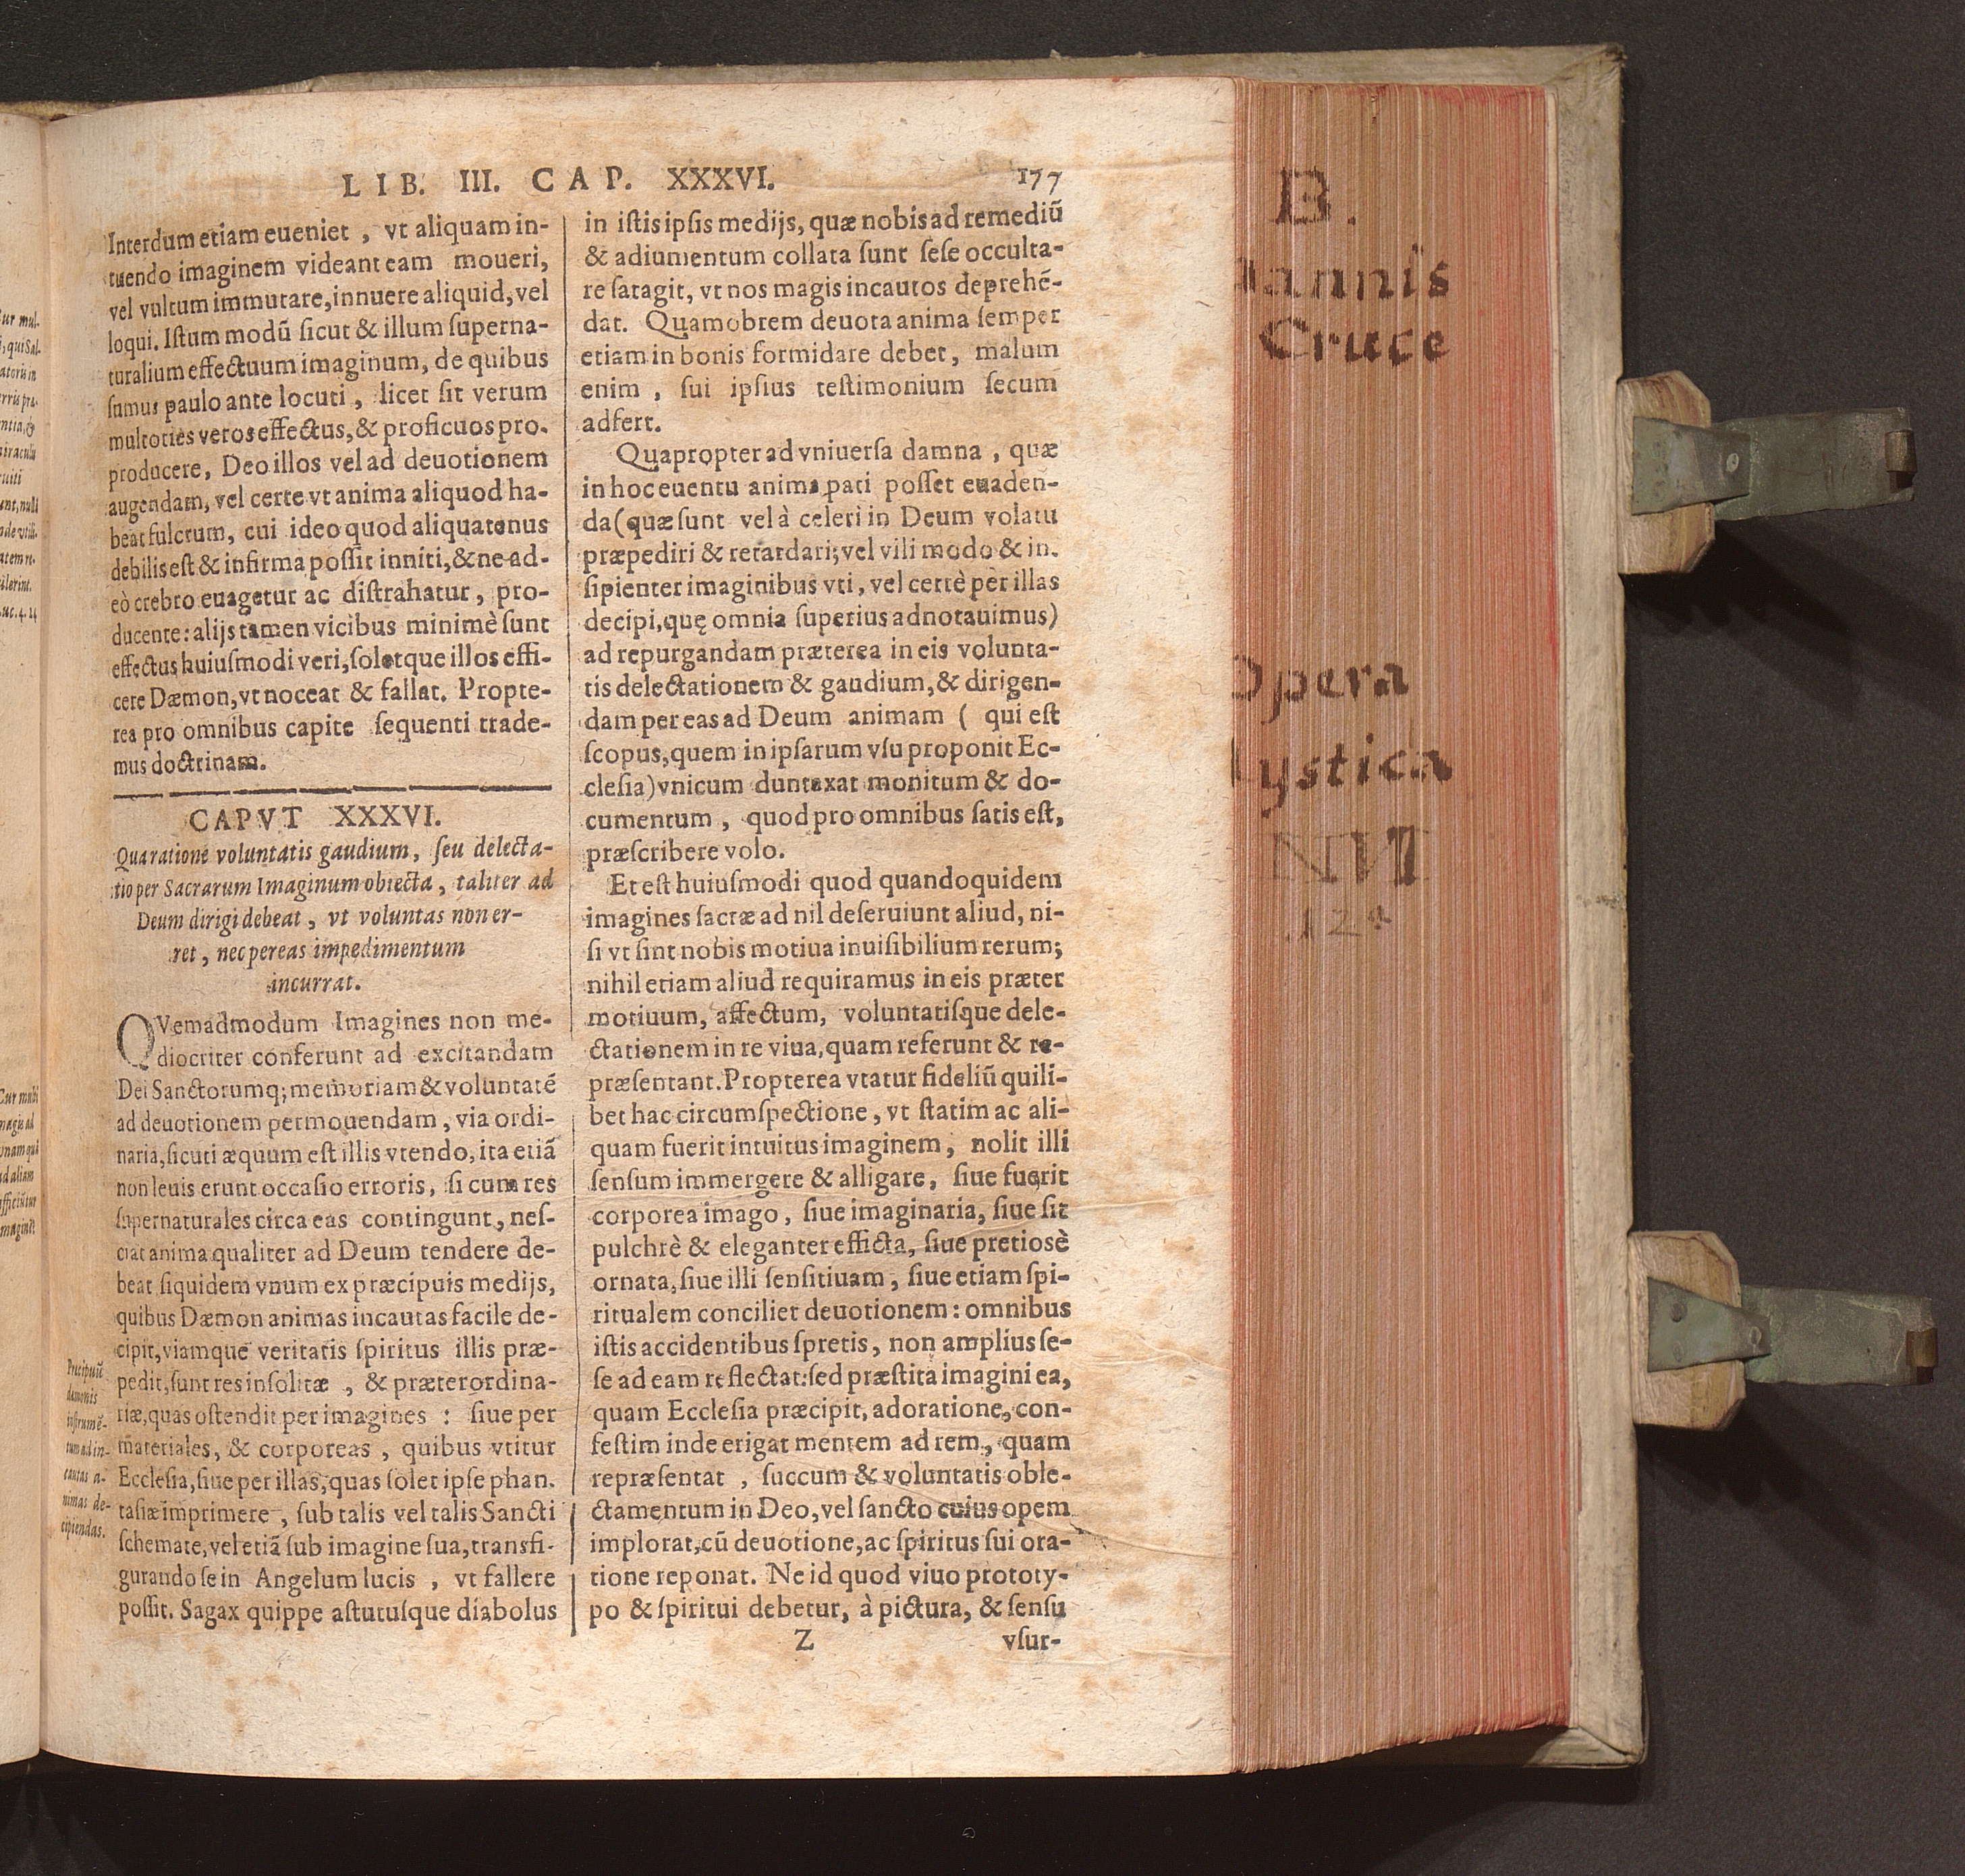 LIB. III. CAP. XXXVI. 177
Interdum etiam eueniet , vt aliquam in-
tuendo imaginem videant eam moueri,
vel vultum immutare, innuere aliquid, vel
loqui. Istum modū sicut & illum superna-
turalium effectuum imaginum, de quibus
sumus paulo ante locuti , licet sit verum
multoties veros effectus, & proficuos pro-
producere, Deo illos vel ad deuotionem
augendam, vel certe vt anima aliquod ha-
beat fulcrum, cui ideo quod aliquatenus
debilis est & infirma possit inniti, & ne ad-
eò crebro euagetur ac distrahatur, pro-
ducente: alijs tamen vicibus minimè sunt
effectus huiusmodi veri, soletque illos effi-
cere Dæmon, vt noceat & fallat. Propte-
rea pro omnibus capite sequenti trade-
mus doctrinam.
CAPVT XXXVI.
Qua ratione voluntatis gaudium, seu delecta-
tio per Sacrarum Imaginum obiecta, taliter ad
Deum dirigi debeat , vt voluntas non er-
ret , nec per eas impedimentum
incurrat.
QVemadmodum Imagines non me-
diocriter conferunt ad excitandam
Dei Sanctorumq; memoriam & voluntatē
ad deuotionem permouendam, via ordi-
naria, sicuti æquum est illis vtendo, ita etiā
non leuis erunt occasio erroris, si cum res
supernaturales circa eas contingunt, nes-
ciat anima qualiter ad Deum tendere de-
beat siquidem vnum ex præcipuis medijs,
quibus Dæmon animas incautas facile de-
cipit, viamque veritatis spiritus illis præ-
pedit, sunt res insolitæ , & præter ordina-
riæ, quas ostendit per imagines : siue per
materiales, & corporeas , quibus vtitur
Ecclesia, siue per illas, quas solet ipse phan-
tasiæ imprimere , sub talis vel talis Sancti
schemate, vel etiā sub imagine sua, transfi-
gurando se in Angelum lucis , vt fallere
possit. Sagax quippe astutusque diabolus
Præcipuū
dæmonis
instrumē-
tum ad in-
cautas a-
nimas de-
cipiendas.
in istis ipsis medijs, quæ nobis ad remediū
& adiumentum collata sunt sese occulta-
re satagit, vt nos magis incautos deprehē-
dat. Quamobrem deuota anima semper
etiam in bonis formidare debet, malum
enim , sui ipsius testimonium secum
adfert.
Quapropter ad vniuersa damna , quæ
in hoc euentu anima pati posset euaden-
da (quæ sunt vel à celeri in Deum volatu
præpediri & retardari; vel vili modo & in-
sipienter imaginibus vti, vel certè per illas
decipi, quę omnia superius adnotauimus)
ad repurgandam præterea in eis volunta-
tis delectationem & gaudium, & dirigen-
dam per eas ad Deum animam ( qui est
scopus, quem in ipsarum vsu proponit Ec-
clesia) vnicum duntaxat monitum & do-
cumentum , quod pro omnibus satis est,
præscribere volo.
Et est huiusmodi quod quandoquidem
imagines sacræ ad nil deseruiunt aliud, ni-
si vt sint nobis motiua inuisibilium rerum;
nihil etiam aliud requiramus in eis præter
motiuum, affectum, voluntatisque dele-
ctationem in re viua, quam referunt & re-
præsentant. Propterea vtatur fideliū quili-
bet hac circumspectione, vt statim ac ali-
quam fuerit intuitus imaginem, nolit illi
sensum immergere & alligare, siue fuerit
corporea imago, siue imaginaria, siue sit
pulchrè & eleganter efficta, siue pretiosè
ornata, siue illi sensitiuam, siue etiam spi-
ritualem conciliet deuotionem: omnibus
istis accidentibus spretis, non amplius se-
se ad eam reflectat: sed præstita imagini ea,
quam Ecclesia præcipit, adoratione, con-
festim inde erigat mentem ad rem, quam
repræsentat , succum & voluntatis oble-
ctamentum in Deo, vel sancto cuius opem
implorat, cū deuotione, ac spiritus sui ora-
tione reponat. Ne id quod viuo prototy-
po & spiritui debetur, à pictura, & sensu
Z vsur-
B.
annis
Cruce
Opera
ystica